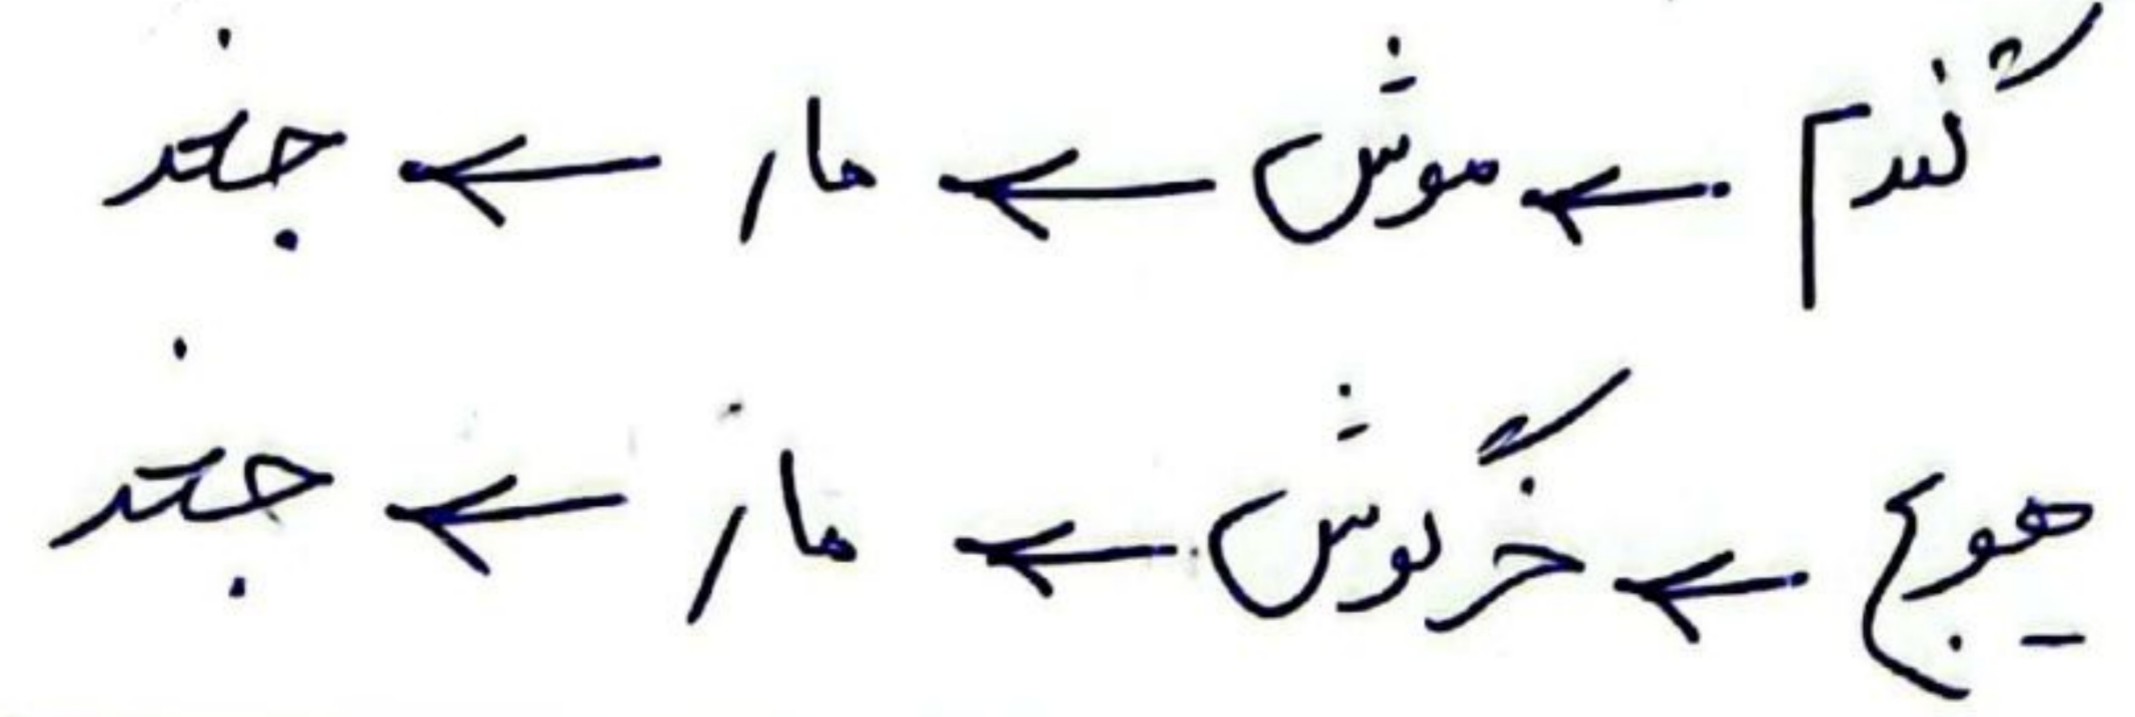 گندم ← موش ← مار ← جغد
هویج ← خرگوش ← مار ← جغد